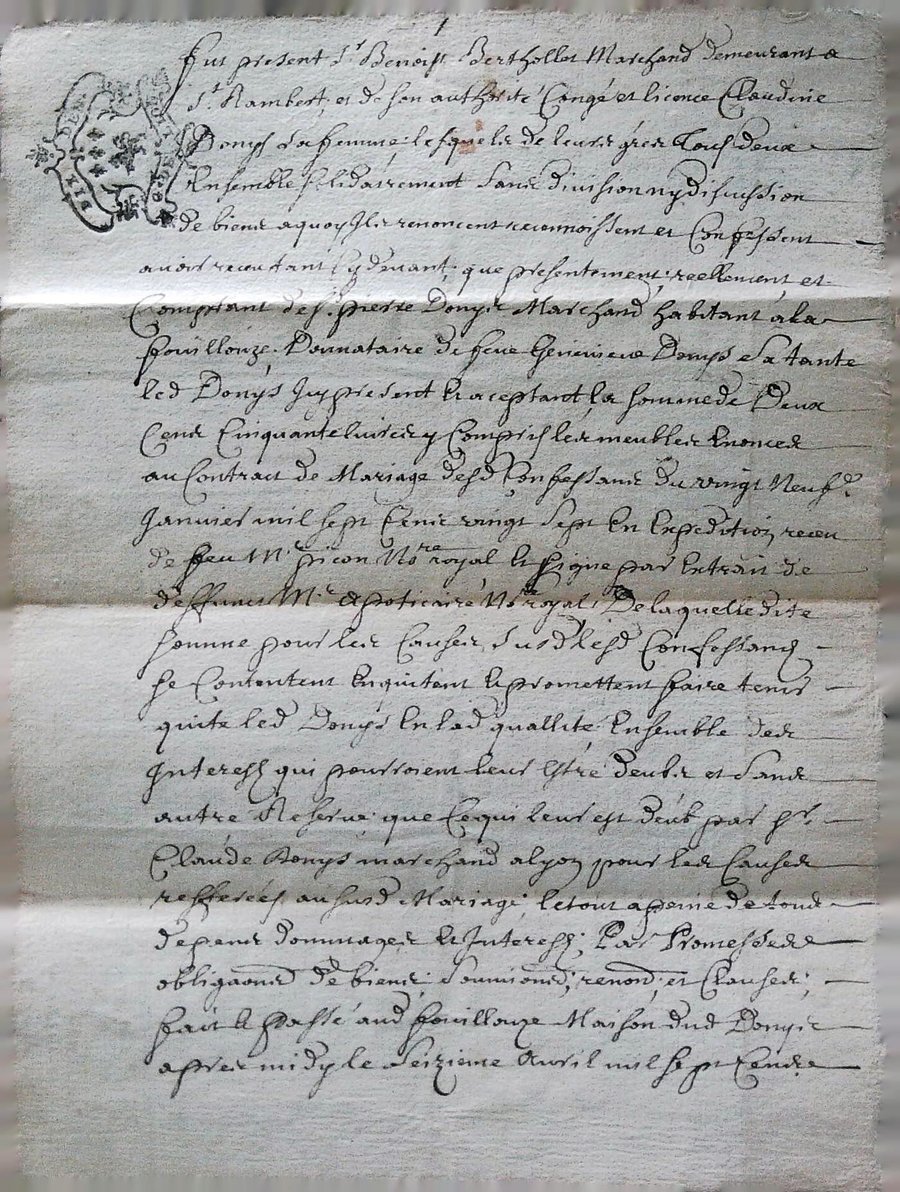 fut present Sr. Benoist Berthollet Marchand demeurant a
St. Rambert, et de son authorité Congé et licence Claudine
Donys sa femme lesquels de leurs gres tous deux
Ensemble solidairement sans division ny discussion
de biens a quoy Ils renoncent reconnoissent et Confessent
avoir receu tant cy devant, que presentement, reellement, et
Comptant de Sr. pierre Donys Marchand habitant a la
fouillouze. Donnataire de feue Genevieve Donys sa tante
led Donys Icy present et aceptant la somme de Deux
Cens Cinquante livres y Compris les meubles Enoncés
au Contract de Mariage desd Confessants du vingt Neufe.
Janvier mil sept Cens vingt sept En Expedition receu
de feu Mr. picon Nore royal et signe par Extrait de
deffunct Mr. Apoticaire Nre royal, De laquelle dite
somme pour les Causes susd lesd Confessants
se Contentent En quitent et promettent faire tenir
quite led Donys En lad quallité, Ensemble des
Interests qui pourroient leurs estre deubs et sans
autre Reserve que Ce qui leur est deub par Sr.
Claude Donys marchand a lyon pour les Causes
refferées au susd Mariage, le tout a peine de tous
depens dommages et Interests; Par Promesses
obligaons de biens soumions; renons; et Clauses;
fait et passé aud fouillouze Maison dud Donys
apres midy le seizieme Avril mil sept Cens